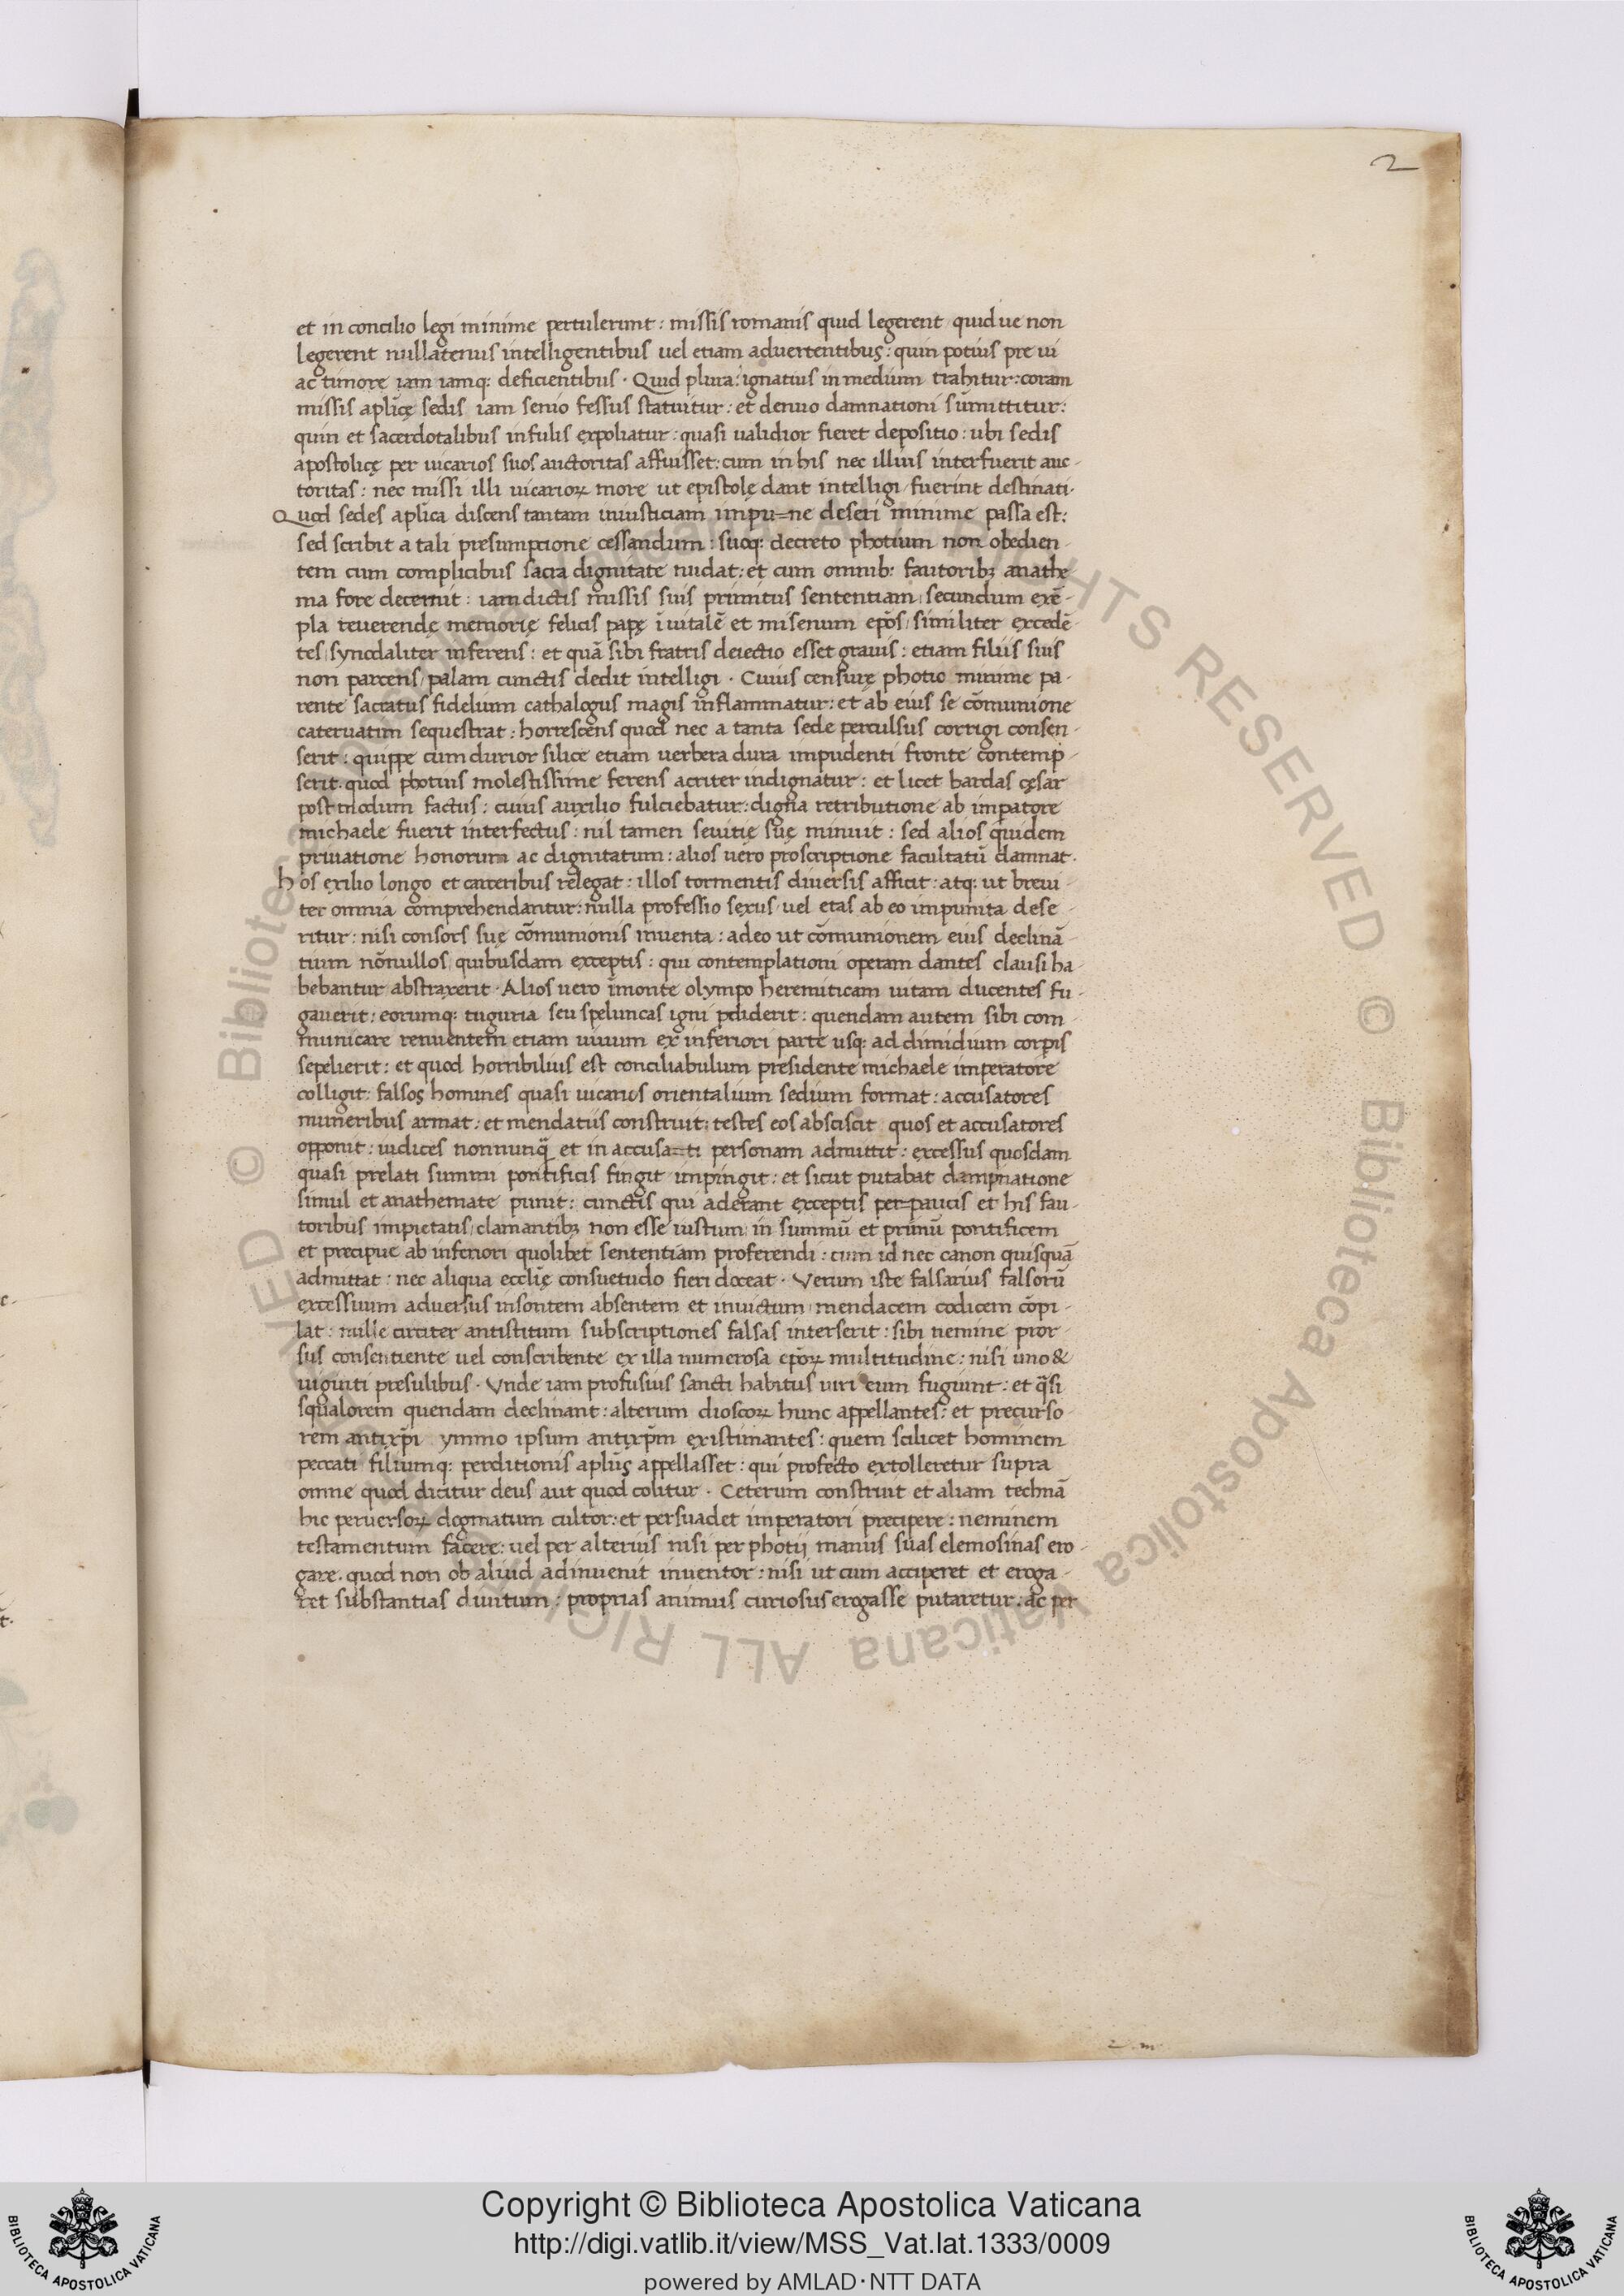 2
et in concilio legi minime pertulerunt : missis romanis quid legerent quid ue non
legerent nullatenus intelligentibus uel etiam aduertentibus : quin potius pre ui
ac timore iam iamq; deficientibus · Quid plura : ignatius in medium trahitur : coram
missis aplicę sedis iam senio fessus statuitur : et denuo damnationi sūmittitur :
quin et sacerdotalibus infulis expoliatur : quasi ualidior fieret depositio : ubi sedis
apostolicę per uicarios suos auctoritas affuisset : cum in his nec illius interfuerit auc-
toritas : nec missi illi uicarioꝝ more ut epistolę dant intelligi / fuerint destinati ·
Quod sedes aplica discens tantam iniusticiam impu=ne deseri minime passa est :
sed scribit a tali presumptione cessandum : suoq; decreto photium non obedien-
tem cum complicibus sacra dignitate nudat : et cum omnib; fautoribꝫ anathe-
ma fore decernit : iam dictis missis suis primitus sententiam / secundum exē-
pla reuerendę memorię felicis papę ī uitalē et misenum epōs / similiter excedē-
tes / synodaliter inferens : et quā sibi fratris deiectio esset grauis : etiam filiis suis
non parcens / palam cunctis dedit intelligi · Cuius censurę photio minime pa-
rente sacratus fidelium cathalogus magis inflammatur : et ab eius se cōmunione
cateruatim sequestrat : horrescens quod nec a tanta sede perculsus corrigi consen-
serit : quippe cum durior silice etiam uerbera dura impudenti fronte contemp-
serit . quod photius molestissime ferens acriter indignatur : et licet bardas cęsar
post modum factus : cuius auxilio fulciebatur : digna retributione ab impatore
michaele fuerit interfectus : nil tamen seuitię suę minuit : sed alios quidem
priuatione honorum ac dignitatum : alios uero proscriptione facultatū damnat .
hos exilio longo et carceribus relegat : illos tormentis diuersis afficit : atq; ut breui-
ter omnia comprehendantur : nulla professio sexus uel etas ab eo impunita dese-
ritur : nisi consors suę cōmunionis inuenta : adeo ut cōmunionem eius declinā-
tium nōnullos quibusdam exceptis : qui contemplationi operam dantes clausi ha-
bebantur abstraxerit · Alios uero īmonte olympo heremiticam uitam ducentes fu-
gauerit : eorumq; tuguria seu speluncas igni pdiderit : quendam autem sibi com-
municare renuentem etiam uiuum ex inferiori parte usq; ad dimidium corpis
sepelierit : et quod horribilius est conciliabulum presidente michaele imperatore
colligit : falsos homines quasi uicarios orientalium sedium format : accusatores
muneribus armat : et mendatiis construit : testes eos absciscit quos et accusatores
opponit : iudices nonnunq̄ et in accusa=ti personam admittit : excessus quosdam
quasi prelati summi pontificis fingit impingit : et sicut putabat dampnatione
simul et anathemate punit : cunctis qui aderant exceptis per=paucis et his fau-
toribus impietatis / clamantibꝫ non esse iustum in summū et primū pontificem
et precipue ab inferiori quolibet sententiam proferendi : cum id nec canon quisquā
admittat : nec aliqua ecclię consuetudo fieri doceat · Verum iste falsarius falsorū
excessuum aduersus insontem absentem et inuictum mendacem codicem cōpi-
lat : mille circiter antistitum subscriptiones falsas interserit : sibi nemine pror-
sus consentiente uel conscribente ex illa numerosa epoꝝ multitudine : nisi uno &
uiginti presulibus · Vnde iam profusius sancti habitus uiri eum fugiunt : et q̄si
squalorem quendam declinant : alterum dioscoꝝ hunc appellantes : et precurso-
rem antixp̄i ymmo ipsum antixp̄m existimantes : quem scilicet hominem
peccati filiumq; perditionis aplūs appellasset : qui profecto extolleretur supra
omne quod dicitur deus aut quod colitur · Ceterum construit et aliam technā
hic peruersoꝝ dogmatum cultor : et persuadet imperatori precipere : neminem
testamentum facere : uel per alterius nisi per photij manus suas elemosinas ero-
gare . quod non ob aliud adinuenit inuentor : nisi ut cum acciperet et eroga-
ret substantias diuitum : proprias animus curiosus erogasse putaretur : ac per
Copyright © Biblioteca Apostolica Vaticana
http://digi.vatlib.it/view/MSS_Vat.lat.1333/0009
powered by AMLAD·NTT DATA
BIBLIOTECA APOSTOLICA VATICANA
BIBLIOTECA APOSTOLICA VATICANA
© Biblioteca Apostolica Vaticana ALL RIGHTS RESERVED